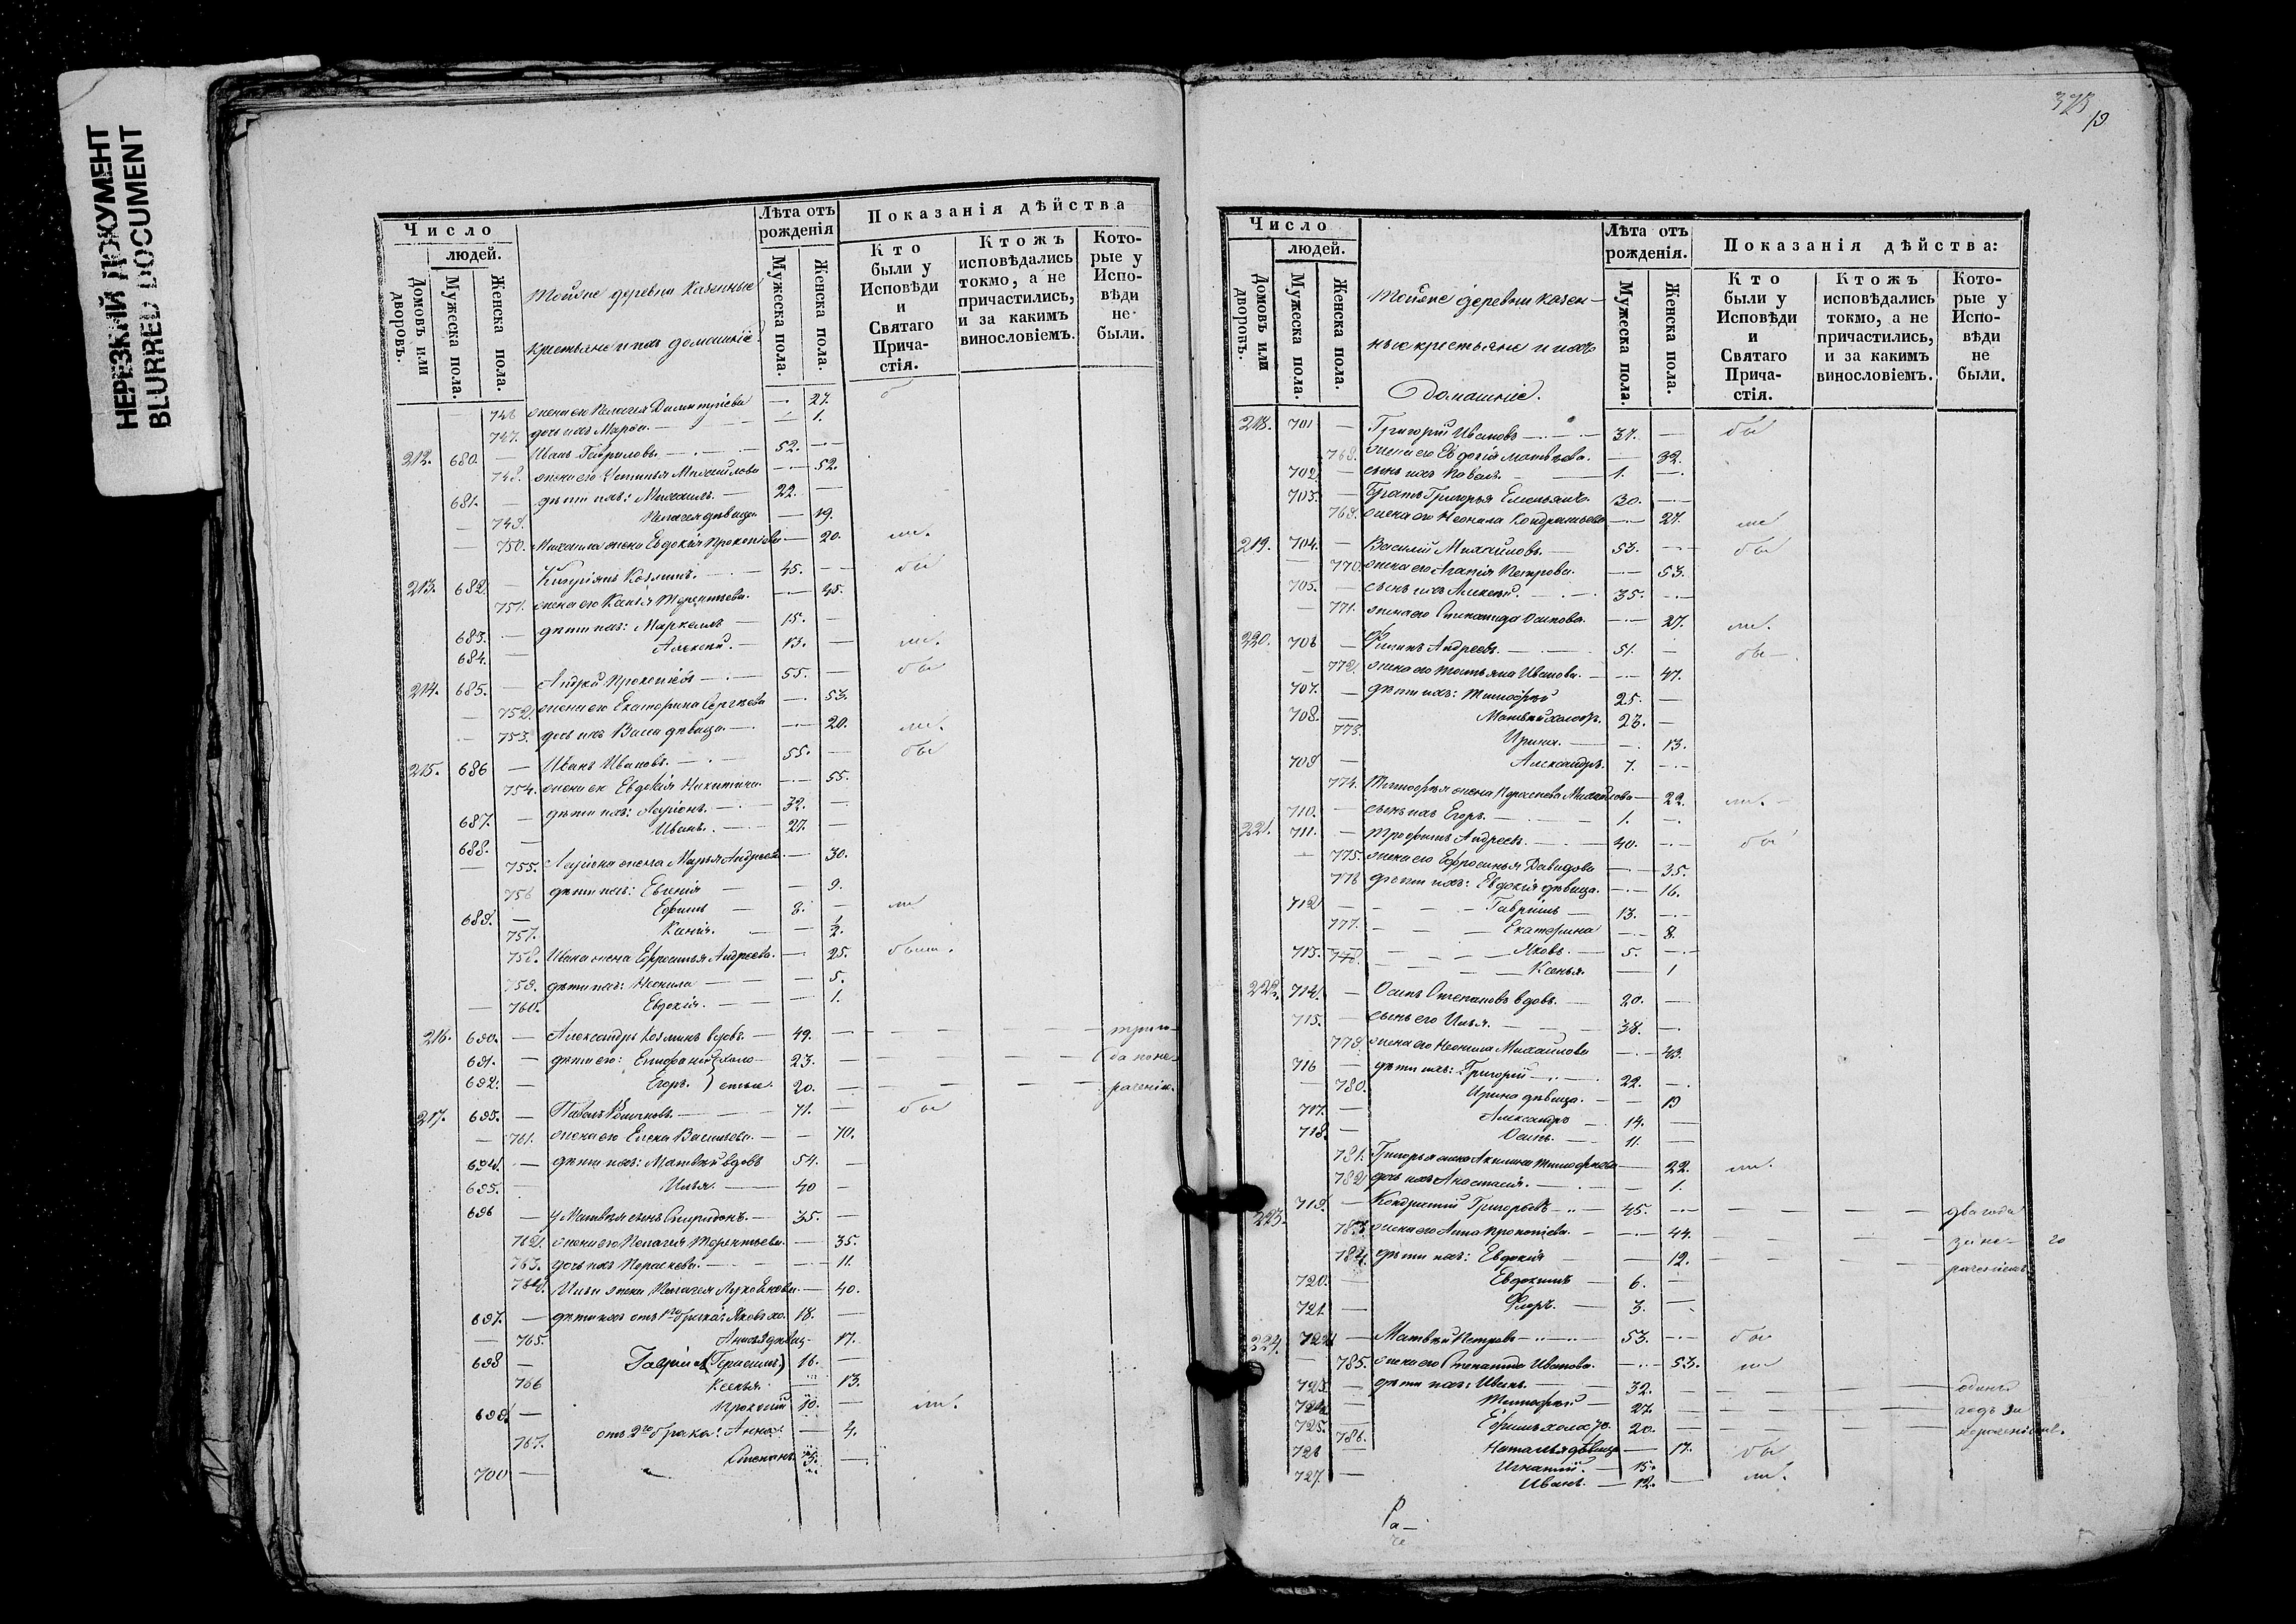 НЕРЕЗКИЙ ДОКУМЕНТ
BLURRED DOCUMENT
Число
людей.
Домовъ или дворовъ.
Мужеска пола.
Женска пола.
Тойже деревни казенные
крестьяне и ихъ домашніе.
Лѣта отъ рожденія
Мужеска пола.
Женска пола.
Показанія дѣйства
Кто были у Исповѣди и Святаго Причастія.
Ктожъ исповѣдались токмо, а не причастились, и за какимъ винословіемъ.
Которые у Исповѣди не были.
746 жена его Пелагея Димитріева — 27.
747. дочь ихъ Марѳа. — 1.
212. 680. — Иванъ Гавриловъ. — 52. —
748. жена его Устинья Михайлова — 52.
681. — дѣти ихъ: Михаилъ. — 22. —
749. Пелагея дѣвица — 19.
750. Михаила жена Евдокія Прокопіева — 20. ли.
213. 682. — Козминъ. — 45. — бы
751. жена его Терентьева. — 45.
683. — дѣти ихъ: Маркеллъ — 15. —
684. — Алексѣй. — 13. — ли.
214. 685. — Андрей Прокопіевъ — 55. — бы
752. жена его Екатерина Сергѣева — 53.
753. дочь ихъ Васса дѣвица. — 20. ли.
215. 686 — Иванъ Ивановъ. — 55. — бы
754. жена его Евдокія Никитина. — 55.
687. — дѣти ихъ: Ларіонъ. — 32. —
688. — Иванъ. — 27. —
755. Ларіона жена Марья Андреева — 30.
756 дѣти ихъ: Евгенія — 9.
689. — Ефимъ — 8. — ли
757. — ½.
758. Ивана жена Ефросинья Андреева. — 25. были.
759. дѣти ихъ: Неонила — 5.
760. Евдокія. — 1.
216. 690. — Александръ Козминъ вдовъ. — 49. —
691. — дѣти его: Епифаній } холо- 23. —
692. — Егоръ. } стые. 20. —
217. 693. — Павелъ — 71. — бы
761. жена его Елена Васильева. — 70.
694. — дѣти ихъ: Матвѣй вдовъ 54. —
695. — Илья. — 40 —
696 — у Матвѣя сынъ Спиридонъ. — 35. —
762. жена его Пелагея Терентьева. — 35.
763. дочь ихъ Параскева. — 11.
764. Ильи жена Пелагея — 40.
697. — дѣти ихъ отъ 1го брака: Яковъ хо. 18. —
765. Анисья дѣвиц. — 17.
698 — Гавріилъ (Герасимъ) 16. —
766 Ксенья — 13.
699. — Прокопій 10. — ли.
767. отъ 2го брака: Анна. — 4.
700 — Степанъ 3. —
373
19
Число
людей.
Домовъ или дворовъ.
Мужеска пола.
Женска пола.
Тойже деревни казен-
ные крестьяне и ихъ
домашніе.
Лѣта отъ рожденія.
Мужеска пола.
Женска пола.
Показанія дѣйства:
Кто были у Исповѣди и Святаго Причастія.
Ктожъ исповѣдались токмо, а не причастились, и за какимъ винословіемъ.
Которые у Исповѣди не были.
218. 701 — Григорій Ивановъ — 37. — бы
768. жена его Евдокія Матвѣева. — 32.
702. — сынъ ихъ Павелъ. — 1. —
703. — Братъ Григорья Емельянъ. 30. —
769. жена его Неонила Кондратьева — 27. ли
219. 704. — Василій Михайловъ. — 53. — бы
770. жена его Агапія Петрова. — 53.
705. — сынъ ихъ Алексѣй. — 35. —
771. жена его Степанида Осипова. — 27. ли.
220. 706 — Филипъ Андреевъ. — 51. — бы
772. жена его Татьяна Иванова. — 47.
707. — дѣти ихъ: Тимофей 25. —
708. — Матвѣй холост. 23. —
773. Ирина. — 13.
709 — Александръ. 7. —
774. Тимофея жена Параскева Михайлова — 22. ли.
710. — сынъ ихъ Егоръ. — 1. —
221. 711. — Трофимъ Андреевъ. — 40. — бы
775. жена его Ефросинья Давидова — 35.
776 дѣти ихъ: Евдокія дѣвица. — 16.
712 — Гавріилъ — 13. —
777. Екатерина — 8.
713. — Яковъ. — 5. —
778. Ксенья. — 1
222. 714. — Осипъ Степановъ вдовъ. — —
715. — сынъ его Илья. — 38. —
779. жена его Неонила Михайлова — 43.
716 — дѣти ихъ: Григорій — 22. —
780. Ирина дѣвица. — 19
717. — Александръ — 14. —
718. — Осипъ. — 11. —
781. Григорья жена Акилина Тимофеева — 22. ли.
782. дочь ихъ Анастасія. — 1.
223. 719. — Кондратій Григорьевъ — 45. — два года
783. жена его Анна Прокопіева. — 44. за не-
784. дѣти ихъ: Евдокія — 12. раченіемъ.
720. — Евдокимъ — 6. —
721. — Флоръ. — 3. —
224. 722. — Матвѣй Петровъ — 53. — бы
785. жена его Степанида Иванова. — 53. ли
723. — дѣти ихъ: Иванъ. — 32. — одинъ
724. — Тимофей — 27. — годъ за
725. — Ефимъ холос. 20. — нераченіемъ.
786. Наталья дѣвица — 17. бы
726 — Игнатій. — 15.
727. — Иванъ. — 12. ли.
Ра-